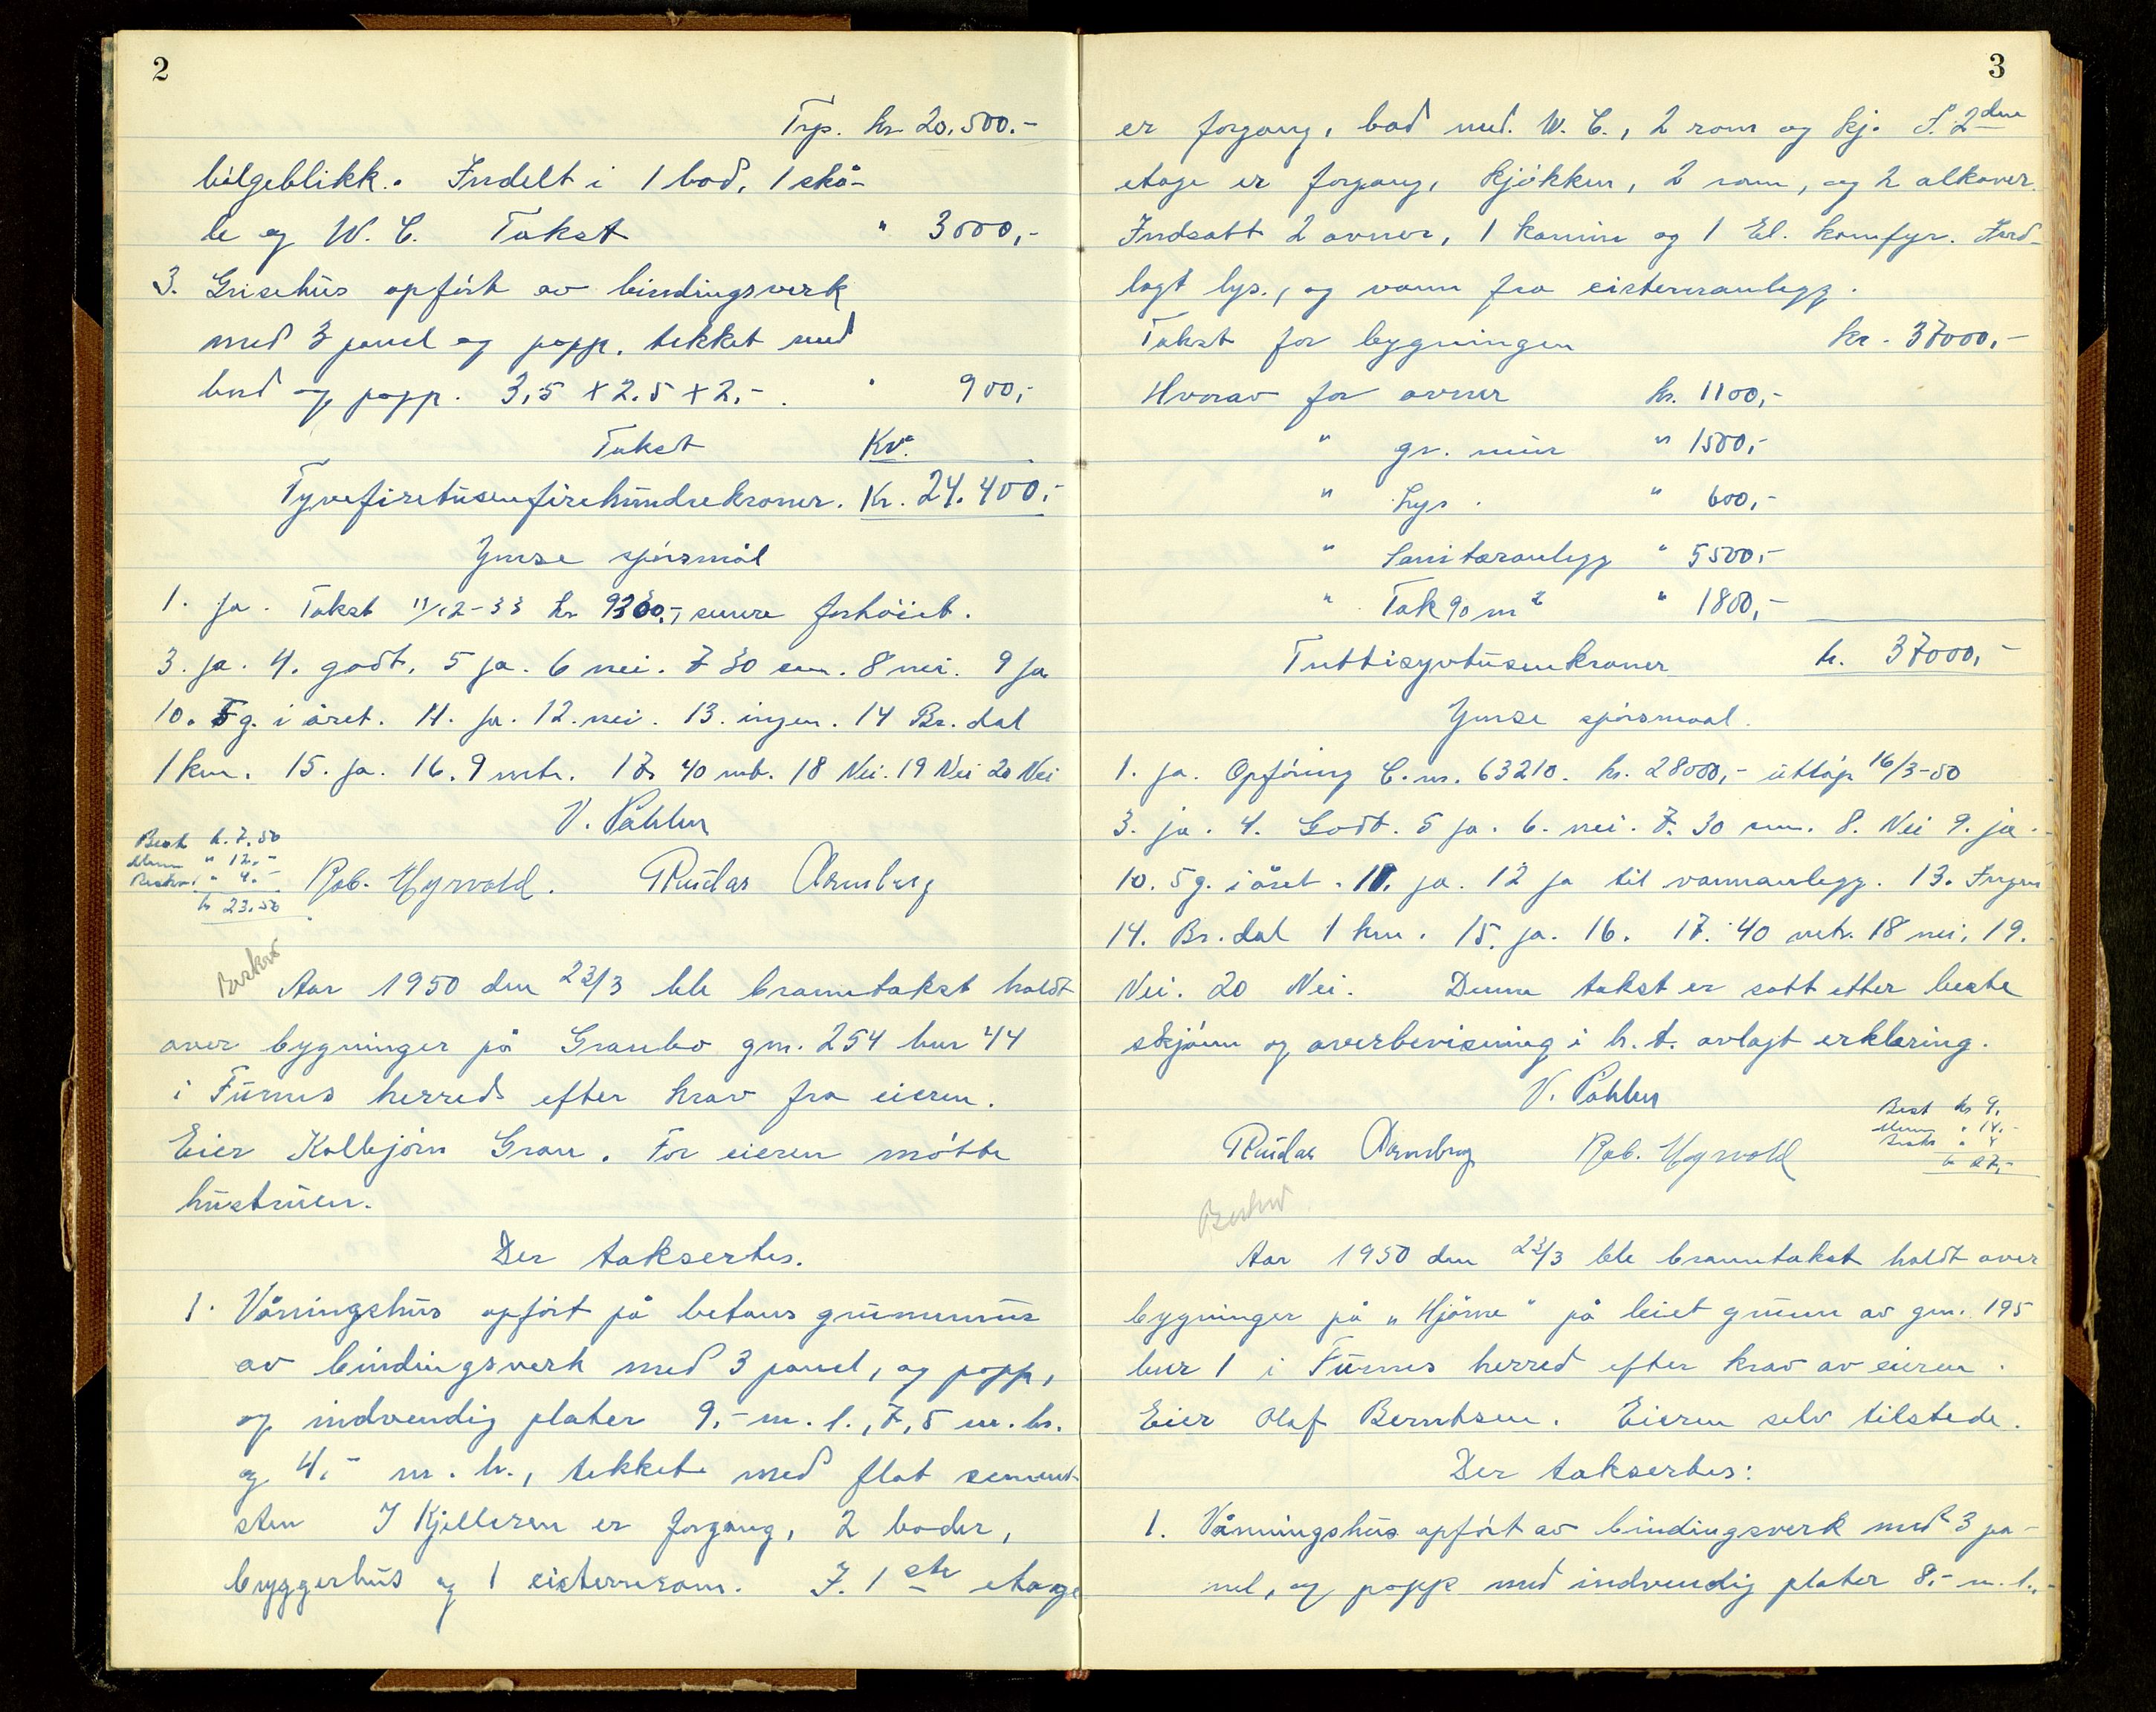 2
Trp. kr 20.500.-
bølgeblikk. Indelt i 1 bod, 1 skå-
le og W. C. Takst " 3000,-
3. Grisehus opført av bindingsverk
med 3 panel og papp. tekket med
bord og papp. 3,5 x 2,5 x 2,-. " 900,-
Takst Kr.
Tyvefiretusenfirehundrekroner. Kr. 24.400.-
Ymse spørsmål
1. Ja. Takst 11/12-33 kr 9300,- senere forhöiet.
3. ja. 4. godt. 5 ja. 6 nei. 7 30 cm. 8 nei. 9 ja
10. 5 g. i året. 11. ja. 12. nei. 13. ingen. 14 Br. dal
1 km. 15. ja. 16. 9 mtr. 17. 40 mt. 18 Nei. 19 Nei 20 Nei
V. Påhlen
Best k. 7.50
" 12.-
" 4.-
k 23.50
Rob. Hyrvold. Ruidar Armberg
Beskr
Aar 1950 den 23/3 ble branntakst holdt
over bygninger på Granbo gnr. 254 bnr 44
i Furnes herred efter krav fra eieren.
Eier Kolbjörn Gran. For eieren møtte
hustruen.
Der taksertes.
1. Våningshus opført på betons grunnmur
av bindingsverk med 3 panel, og papp,
og indvendig plater 9,- m. l., 7,5 m. br.
og 4,- m. h., tekket med flat sement-
sten I Kjelleren er forgang, 2 boder,
bryggerhus og 1 cisternerom. I. 1ste etage
3
er forgang, bad med. W. C., 2 rom og kj. I. 2dne
etage er forgang, kjøkken, 2 rom, og 2 alkover.
Indsatt 2 ovner, 1 kamin og 1 El. komfyr. Ind-
lagt lys., og vann fra cisterneanlegg.
Takst for bygningen kr. 37000,-
Hvorav for ovner kr. 1100,-
" gr. mur " 1500,-
" Lys. " 600,-
" Sanitæranlegg " 5500,-
" Tak 90 m2 " 1800,-
Trettisyvtusenkroner k. 37000,-
Ymse spørsmaal.
1. ja. Opføring C. nr. 63210. kr. 28000,- utløp 16/3-50
3. ja. 4. Godt. 5 ja. 6. nei. 7. 30 cm. 8. Nei 9. ja.
10. 5 g. i året. 11. ja. 12 ja til vannanlegg. 13. Ingen
14. Br. dal 1 km. 15. ja. 16. 17. 40 mtr. 18 nei. 19.
Nei. 20 Nei. Denne takst er satt etter beste
skjønn og overbevisning i h. t. avlagt erklæring.
V. Påhlen
Best kr 9.
" 14.-
" 4
k 27,-
Ruidar Armberg Rob. Hyrvold
Beskr
Aar 1950 den 23/3 ble branntakst holdt over
bygninger på "Hjörne" på leiet grunn av gnr. 195
bnr 1 i Furnes herred efter krav av eieren.
Eier Olaf Berntsen. Eieren selv tilstede.
Der taksertes:
1. Våningshus opført av bindingsverk med 3 pa-
nel, og papp med indvendig plater 8,- m. l.,